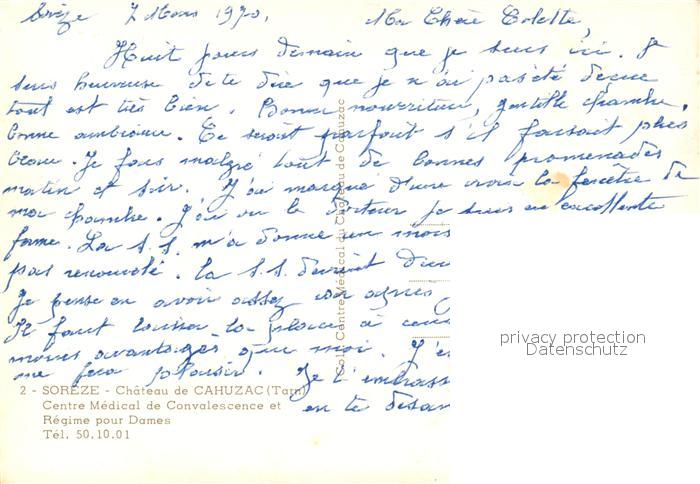 Sorèze 7 Mars 1970, Ma Chère Colette,
Huit jours demain que je suis ici. Je
suis heureuse de te dire que je n'ai pas été déçue
tout est très bien. Bonne nourriture, gentille chambre,
bonne ambiance. Ce serait parfait s'il faisait plus
beau. Je fais malgré tout de bonnes promenades
matin et soir. J'ai marqué d'une croix la fenêtre de
ma chambre. J'ai vu le docteur je suis en excellente
forme. La S.S. m'a donné un mois
pas renouvelé. la S.S. devrait
Je pense en avoir assez car après
Il faut laisser la place à
moins avantagés que moi.
me fera plaisir. Je t'embrass
en te disan
2 - SORÈZE - Château de CAHUZAC (Tarn)
Centre Médical de Convalescence et
Régime pour Dames
Tél. 50.10.01
Centre Médical du Château de Cahuzac
privacy protection
Datenschutz